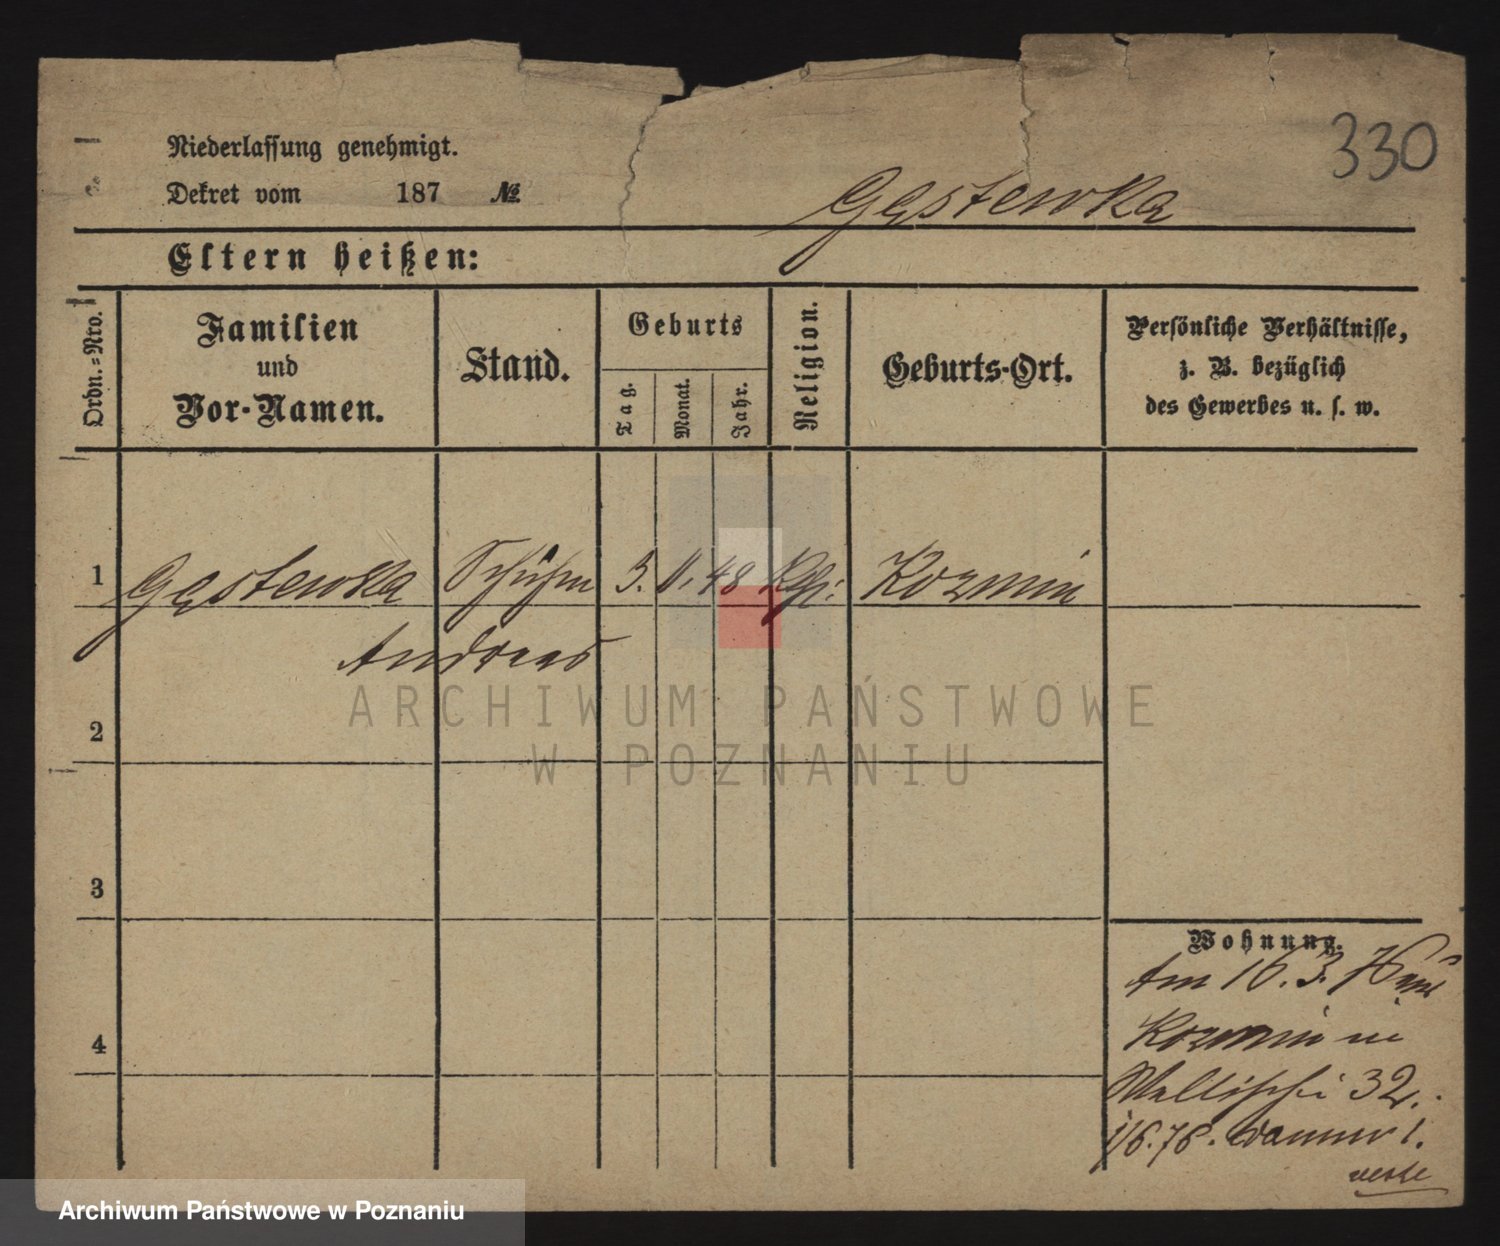 330
Niederlassung genehmigt.
Dekret vom 187 №
Gęstewka
Eltern heißen:
Ordn.=Nro.
Familien
und
Vor-Namen.
Stand.
Geburts
Tag.
Monat.
Jahr.
Religion.
Geburts-Ort.
Persönliche Verhältnisse,
z. B. bezüglich
des Gewerbes u. s. w.
1 Gęstewka 5. 11. 48 Kozmin
Andreas
2
3
4
Wohnung.
Am 16. 3. 76
Kozmin in
Wallischei 32.
ARCHIWUM PAŃSTWOWE
W POZNANIU
Archiwum Państwowe w Poznaniu